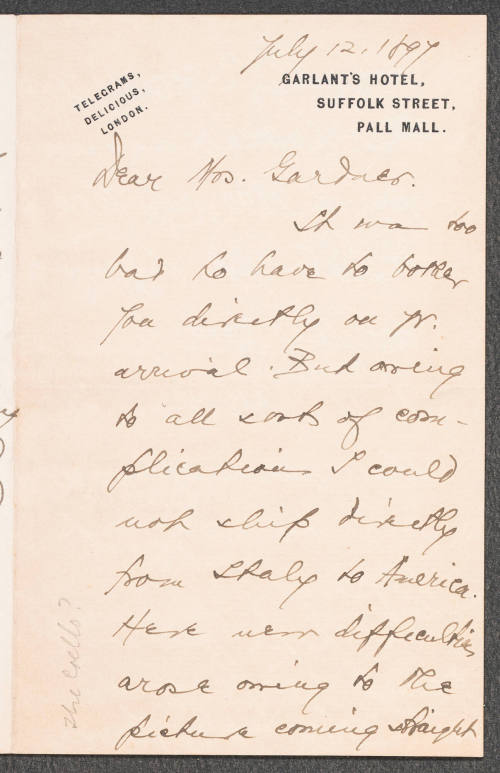 July 12, 1897
TELEGRAMS,
DELICIOUS,
LONDON.
GARLANT'S HOTEL,
SUFFOLK STREET,
PALL MALL.
Dear Mrs. Gardner.
It was too
bad to have to bother
you directly on yr.
arrival. But owing
to all sorts of com-
plications I could
not ship directly
from Italy to America.
Here new difficulties
arose owing to the
picture coming straight
the Coello?